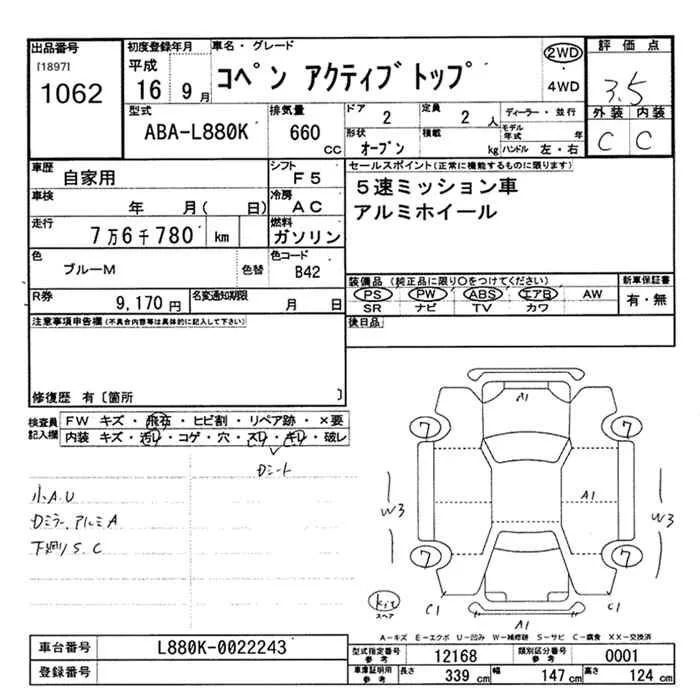 出品番号
[1897]
1062
初度登録年月
平成
16 9月
車名・グレード
コペン アクティブトップ
2WD
4WD
評価点
3.5
外装 内装
C C
型式
ABA-L880K
排気量
660 CC
ドア
2
定員
2人
ディーラー・並行
モデル年式 年
形状
オープン
積載
kg
ハンドル 左・右
車歴
自家用
シフト
F5
車検
年 月( 日)
冷房
AC
走行
7万6千780 km
燃料
ガソリン
色
ブルーM
色替
色コード
B42
R券
9,170円
名変通知期限
月 日
セールスポイント(正常に機能するものに限ります)
5速ミッション車
アルミホイール
装備品 (純正品に限り○をつけてください)
PS PW ABS エアB AW
SR ナビ TV カワ
新車保証書
有・無
後日品
注意事項申告欄(不具合内容等は具体的に記入して下さい)
修復歴 有〔箇所 〕
検査員記入欄
FW キズ・飛石・ヒビ割・リペア跡・×要
内装 キズ・汚レ・コゲ・穴・スレ・キレ・破レ
Dシート
小A.U
Dミラー、アルミA
下廻りS.C
A1
7 7
W3 A1 W3
7 7
kit
スペア
C1 C1
A1
A-キズ E-エクボ U-凹み W-補修跡 S-サビ C-腐食 XX-交換済
車台番号
L880K-0022243
登録番号
型式指定番号 参考
12168
類別区分番号 参考
0001
車庫証明用 参考
長さ 339 cm 幅 147 cm 高さ 124 cm